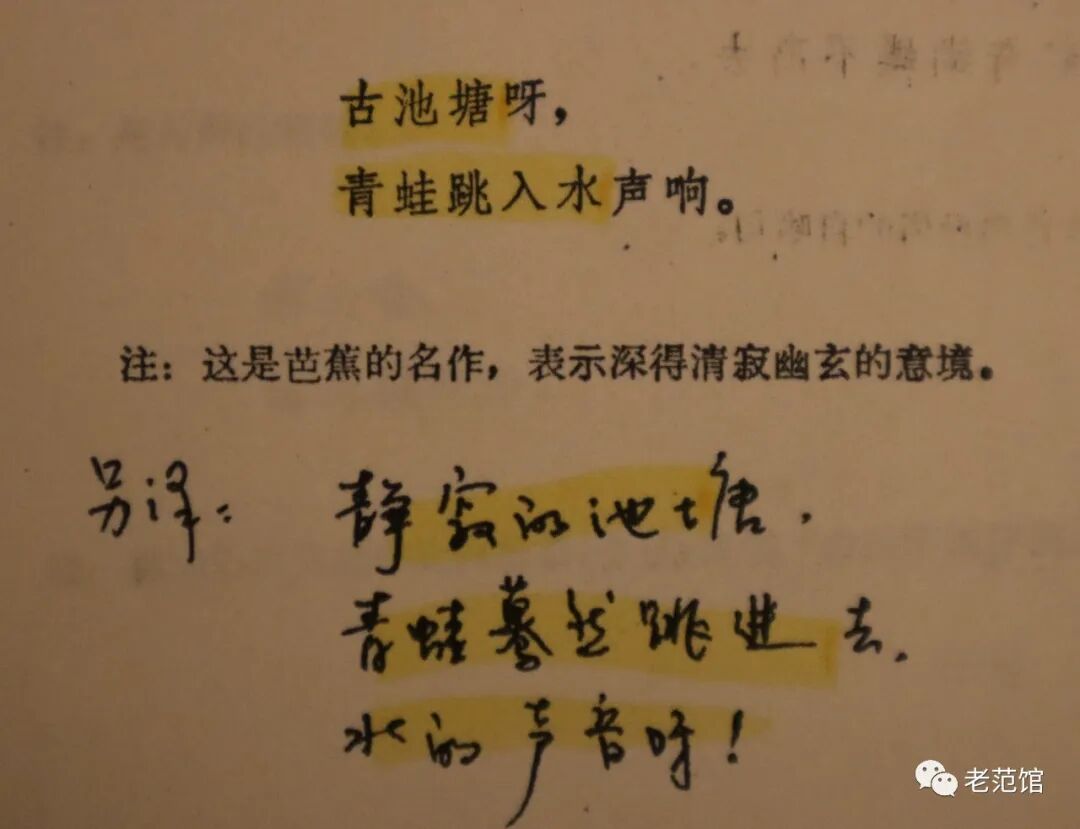 古池塘呀，
青蛙跳入水声响。
注：这是芭蕉的名作，表示深得清寂幽玄的意境。
另译：静寂的池塘，
青蛙蓦然跳进去，
水的声音呀！
老范馆